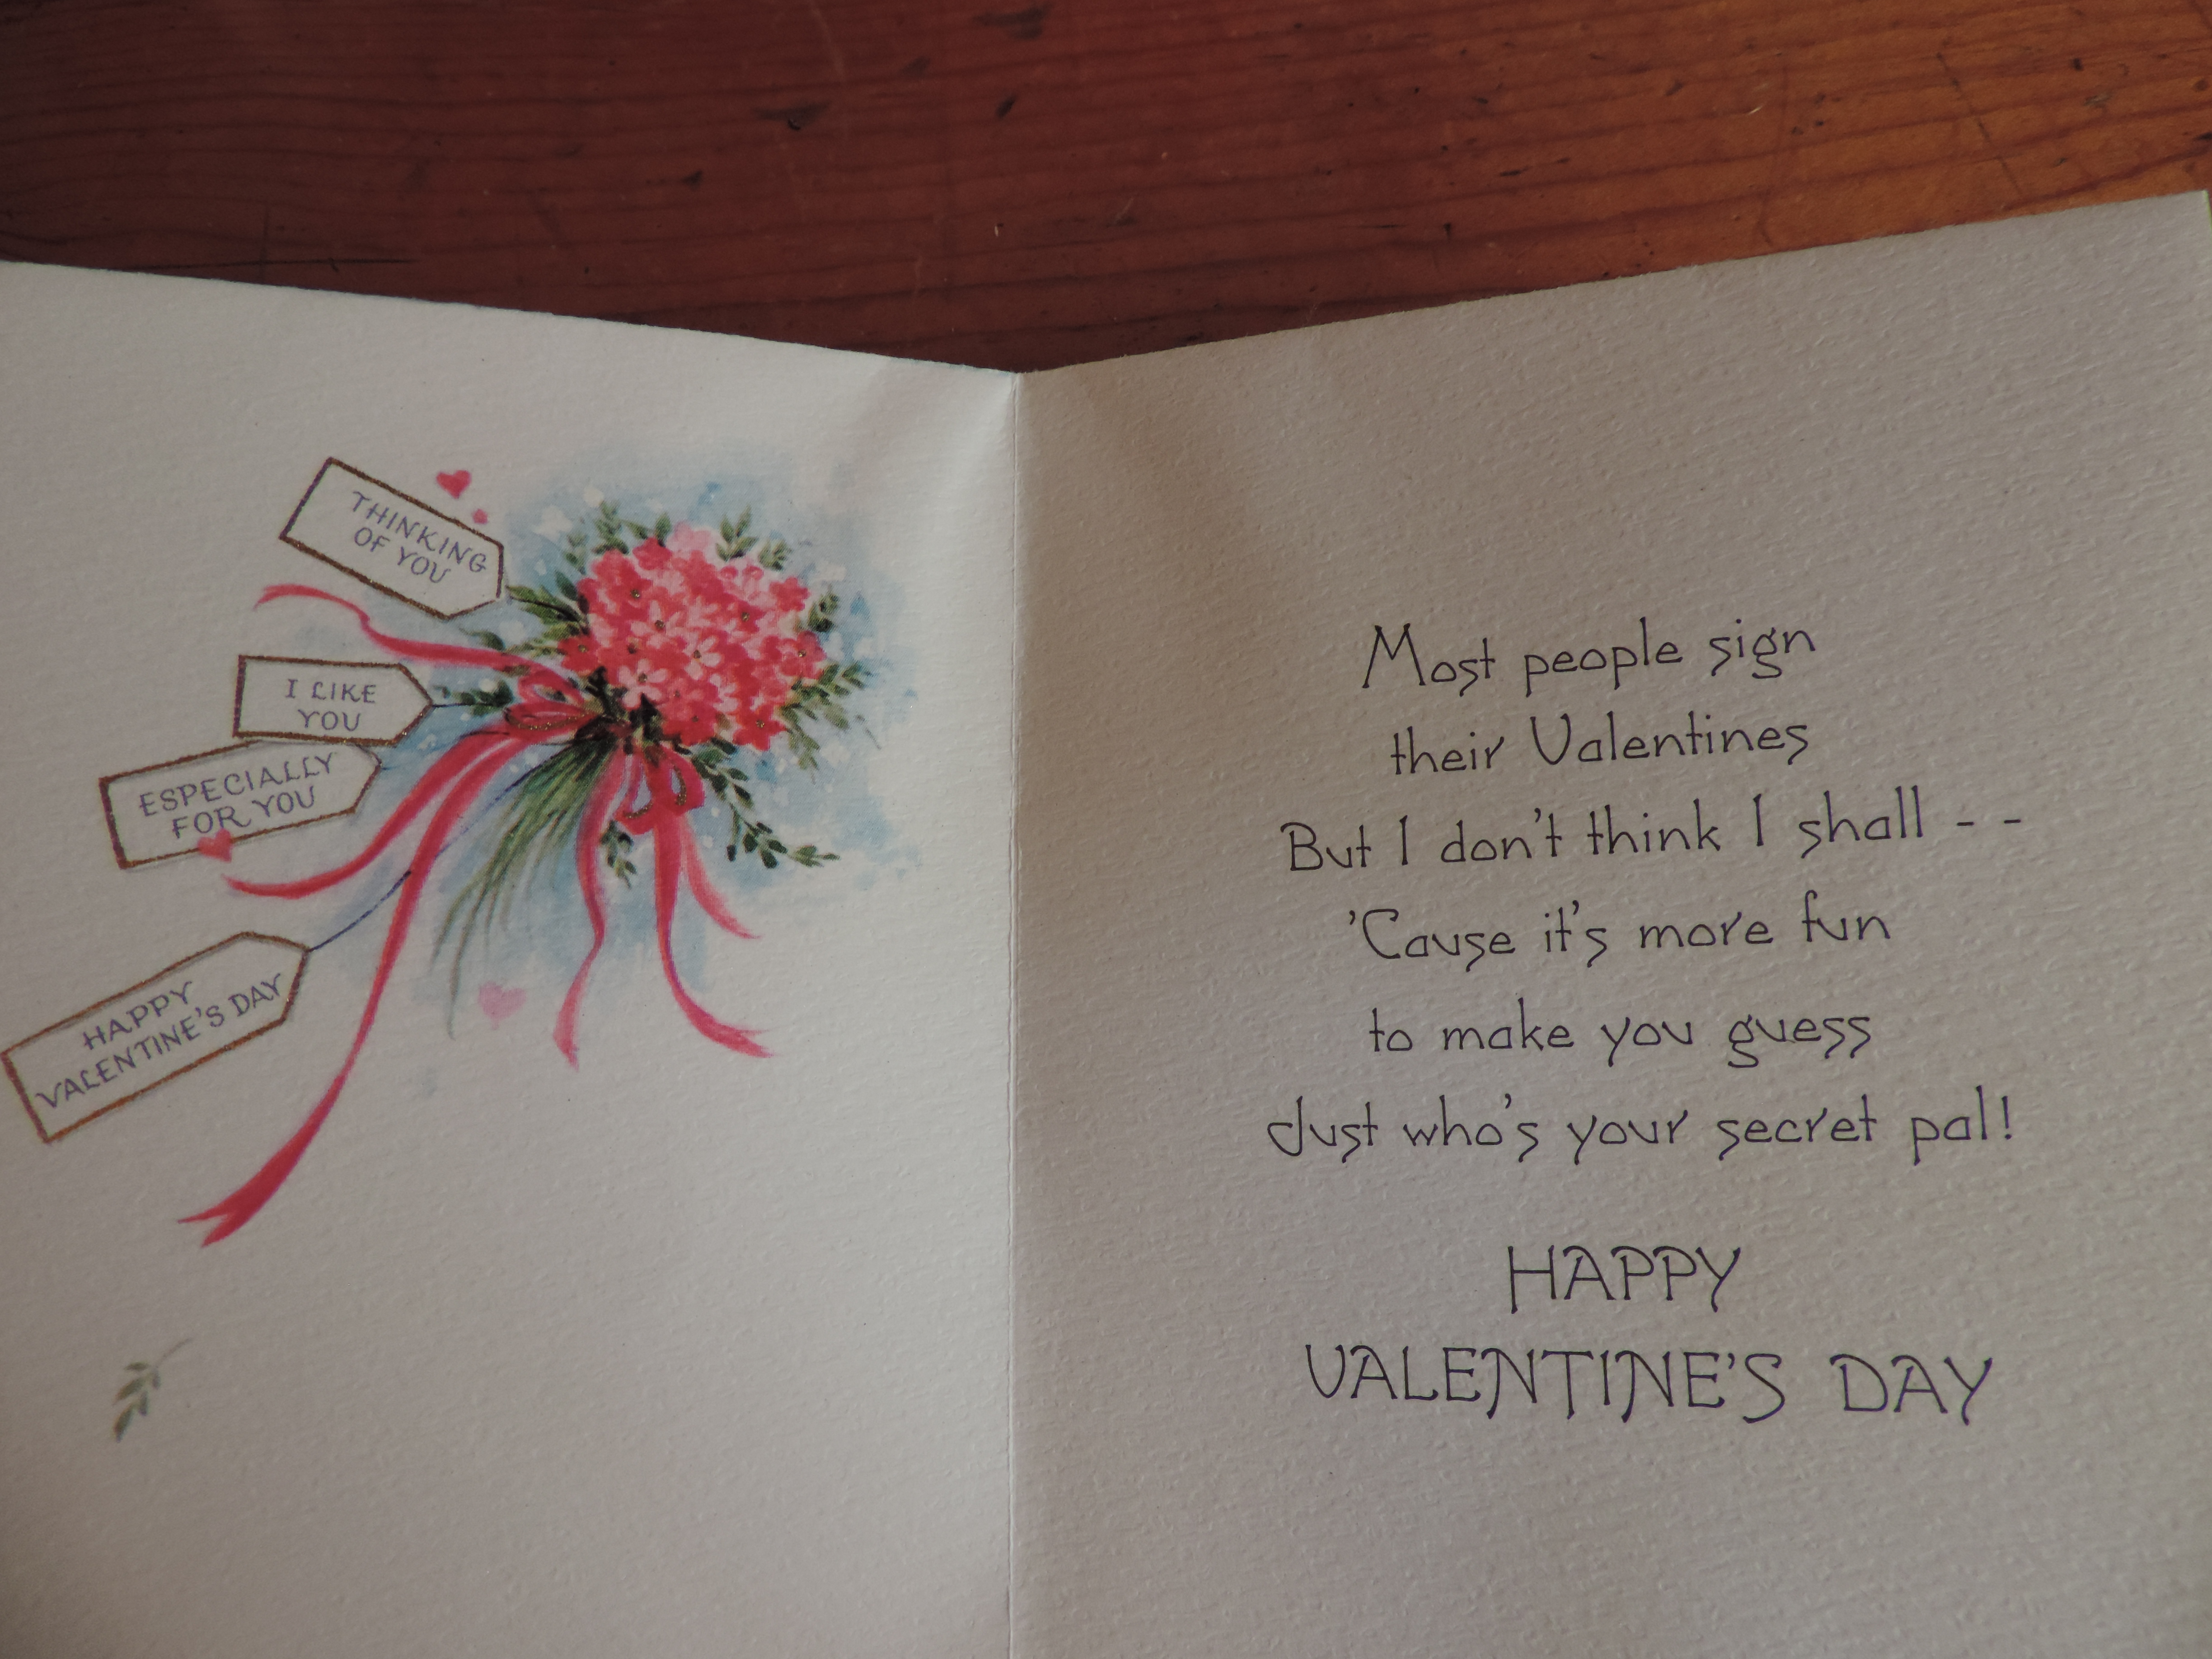 THINKING
OF YOU
I LIKE
YOU
ESPECIALLY
FOR YOU
HAPPY
VALENTINE'S DAY
Most people sign
their Valentines
But I don't think I shall - -
'Cause it's more fun
to make you guess
Just who's your secret pal!
HAPPY
VALENTINE'S DAY